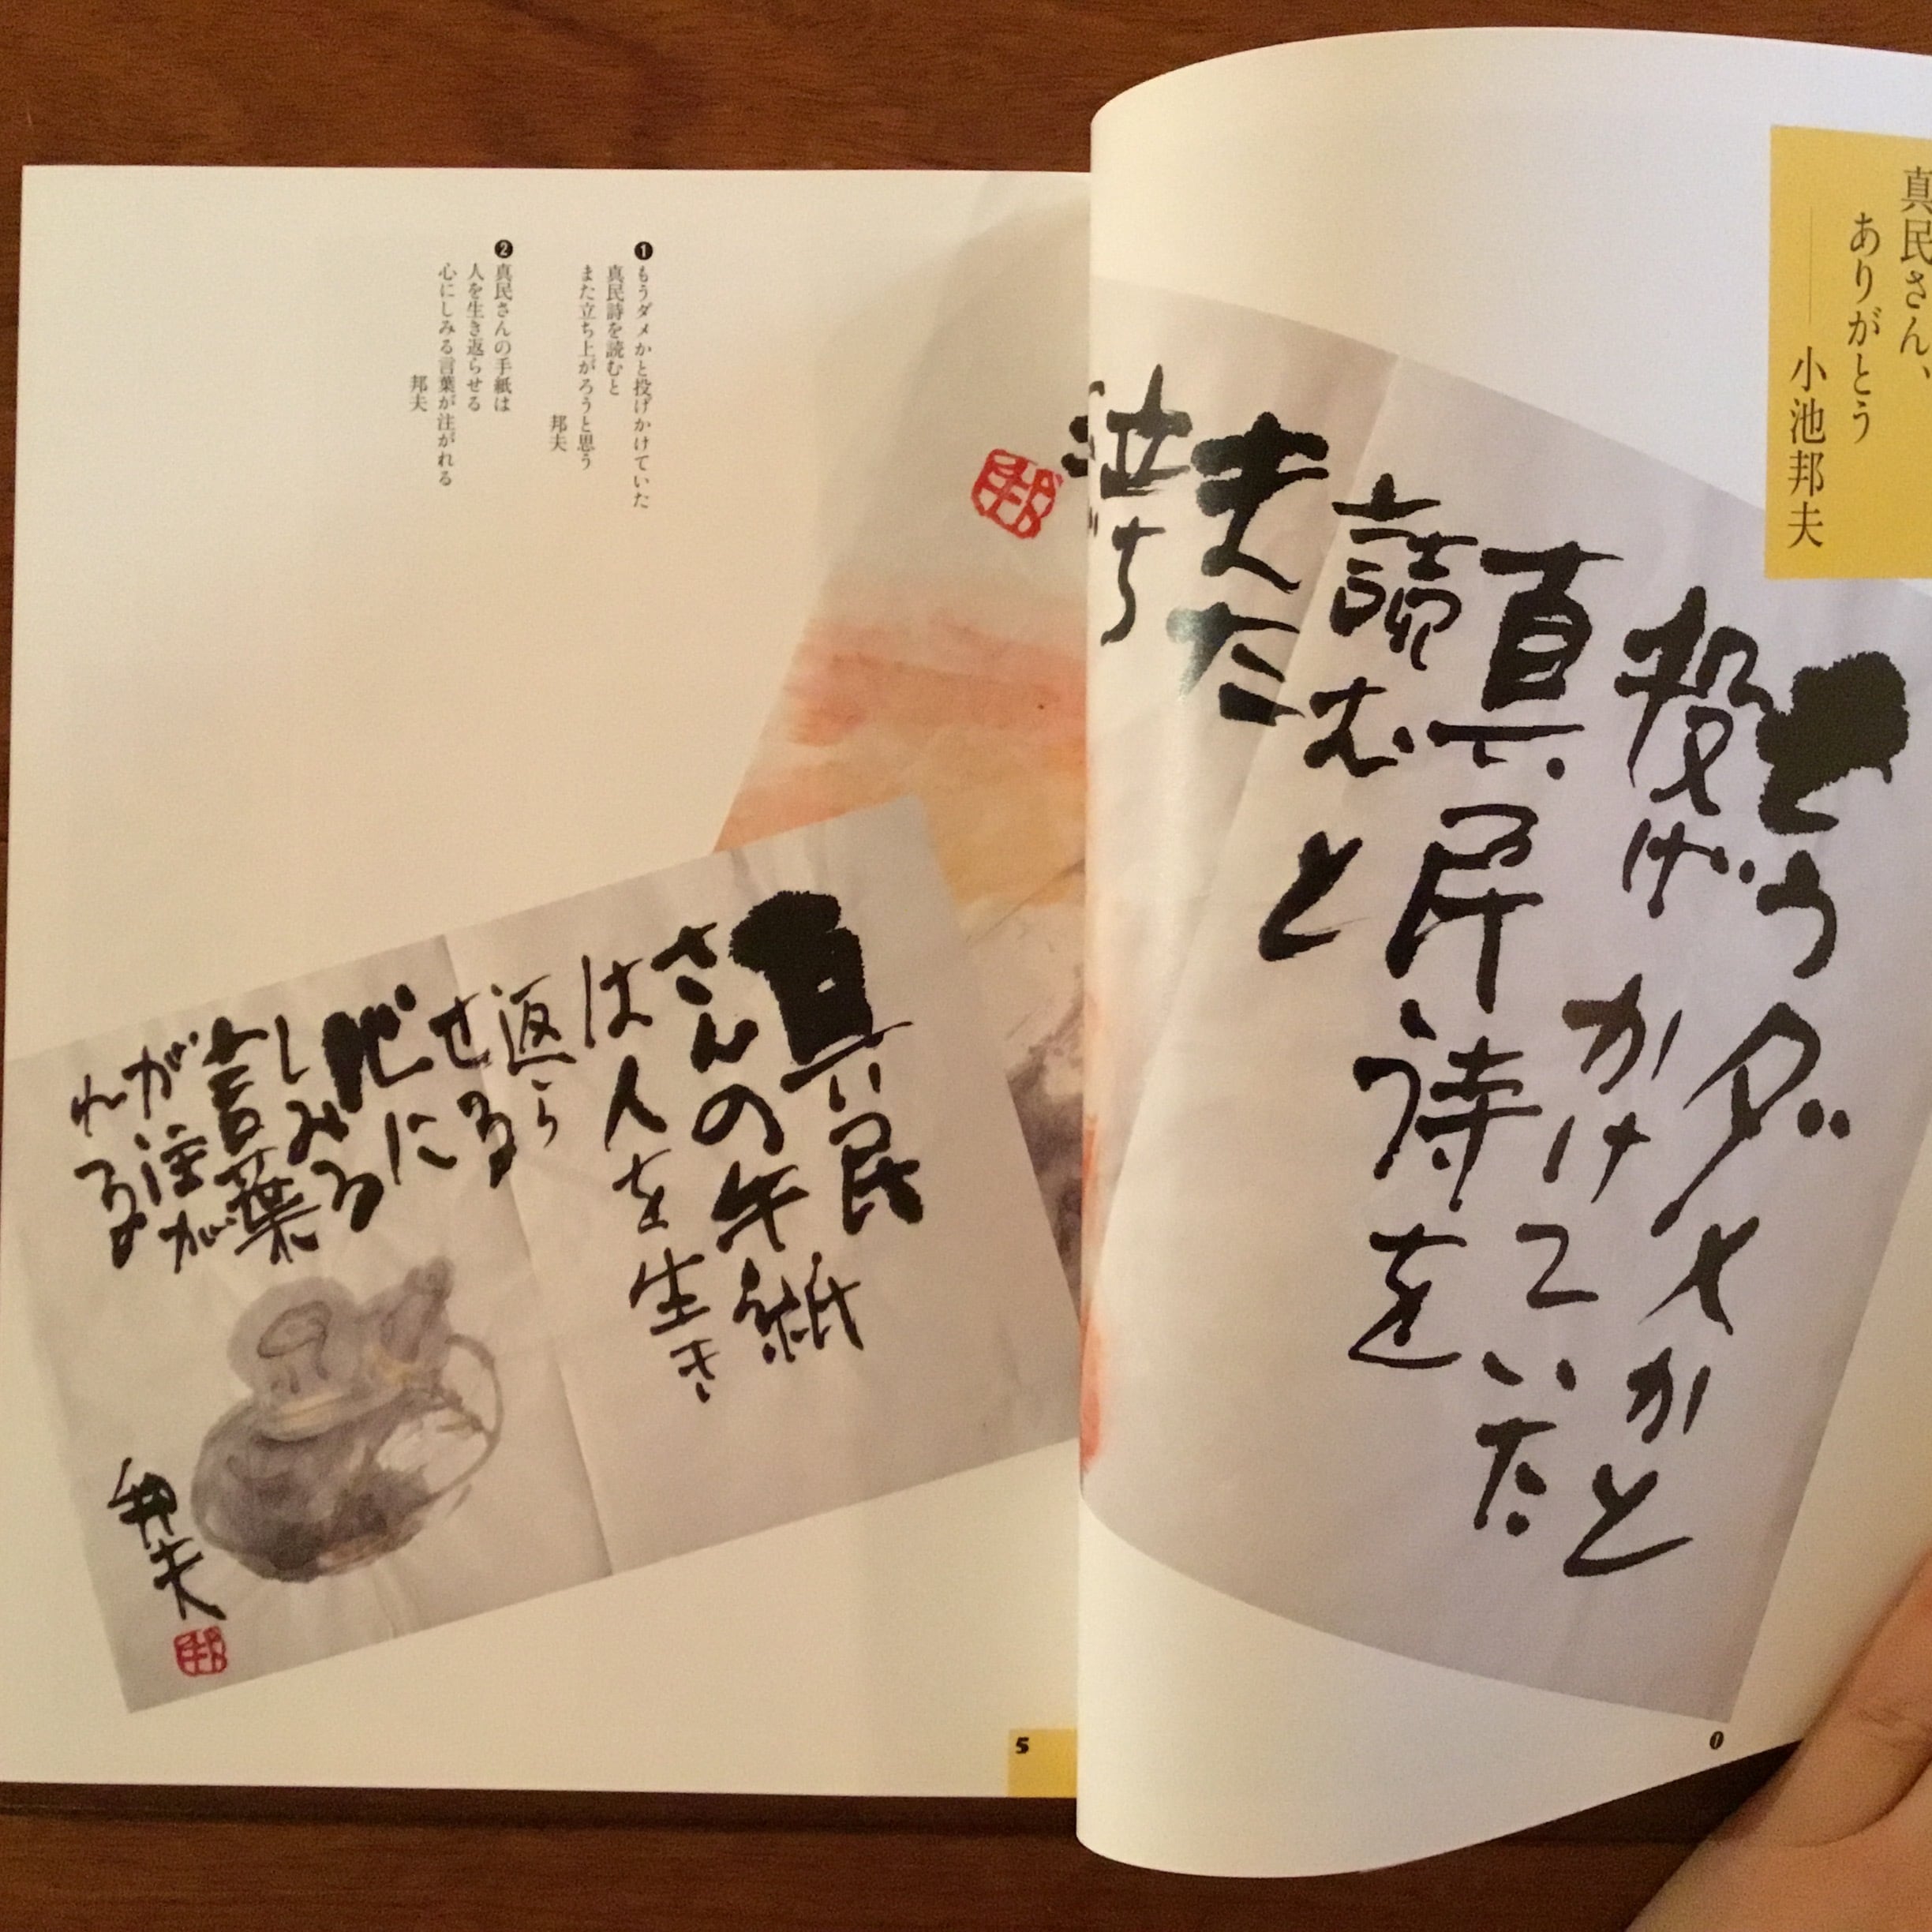 真民さん、
ありがとう
小池邦夫
もうダメかと
投げかけていた
真民詩を
読むと
また
立ち
❶
もうダメかと投げかけていた
真民詩を読むと
また立ち上がろうと思う
邦夫
❷
真民さんの手紙は
人を生き返らせる
心にしみる言葉が注がれる
邦夫
真民
さんの手紙
は人を生き
返ら
せる
心に
しみる
言葉
が注が
れる
邦夫
邦
邦
5